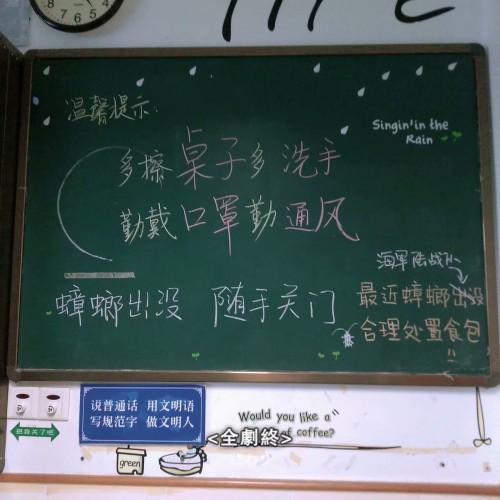 温馨提示:
Singin'in the
Rain
多擦桌子多洗手
勤戴口罩勤通风
海军陆战队
蟑螂出没 随手关门
最近蟑螂出没
合理处置食包
!!
说普通话 用文明语
写规范字 做文明人
Would you like a
of coffee?
<全劇終>
green